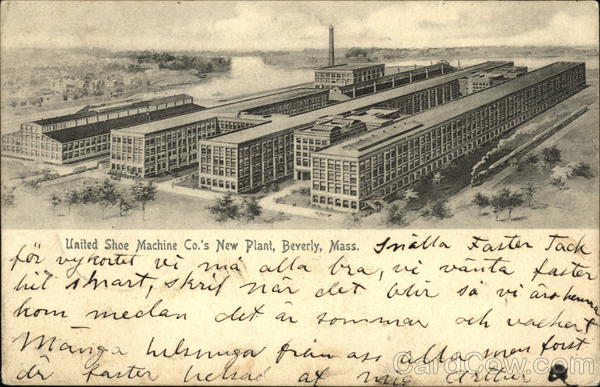 United Shoe Machine Co.'s New Plant, Beverly, Mass.
Snälla Faster Tack
för vykortet vi må alla bra, vi vänta faster
hit snart, skrif när det blir så vi äro hemma
kom medan det är sommar och vackert
Många helsninga från oss alla men först
är faster helsad af mig
CardCow.com